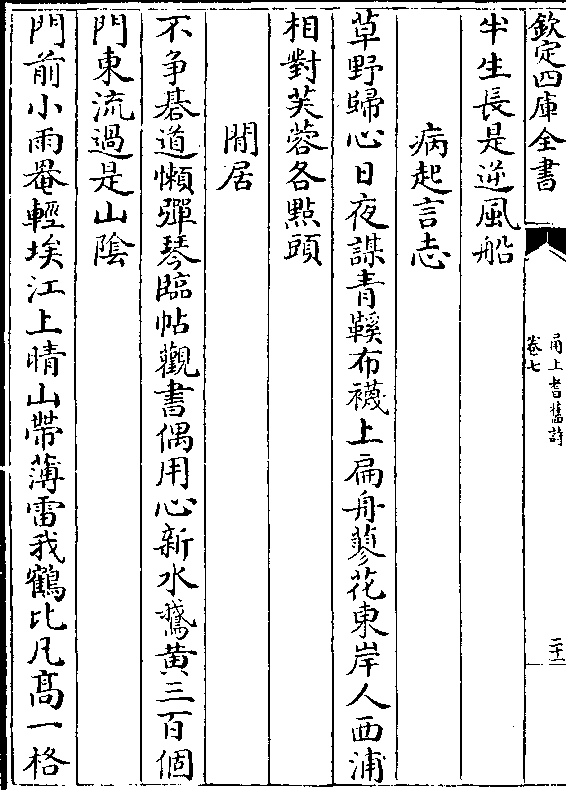 欽定四庫全書
甬上耆舊詩
卷七
二十一
半生長是逆風船
病起言志
草野歸心日夜謀青鞵布襪上扁舟蓼花東岸人西浦
相對芙蓉各點頭
閒居
不争碁道懶彈琴臨帖觀書偶用心新水鵞黄三百個
門東流過是山陰
門前小雨罨輕埃江上晴山帶薄雷我鶴比凡髙一格